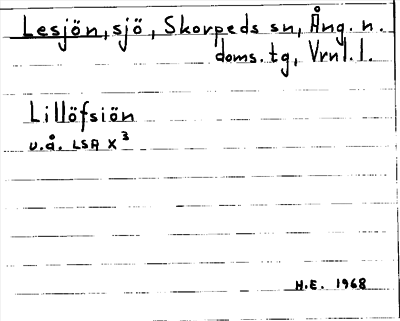 Lesjön, sjö, Skorpeds sn, Ång. n.
doms. tg, Vrnl. l.
Lillöfsiön
u.å. LSA X³
H.E. 1968